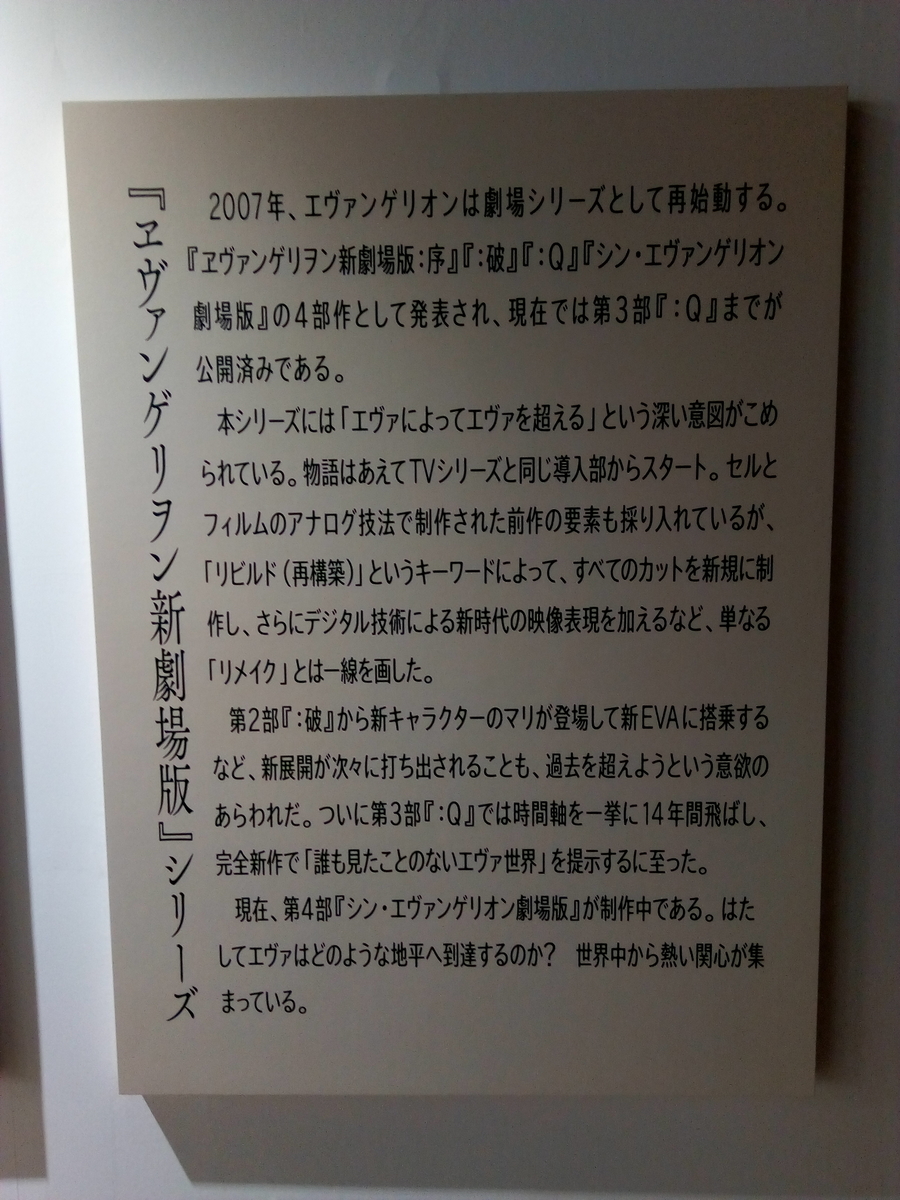 『ヱヴァンゲリヲン新劇場版』シリーズ
2007年、エヴァンゲリオンは劇場シリーズとして再始動する。
『ヱヴァンゲリヲン新劇場版:序』『:破』『:Q』『シン・エヴァンゲリオン
劇場版』の4部作として発表され、現在では第3部『:Q』までが
公開済みである。
本シリーズには「エヴァによってエヴァを超える」という深い意図がこめ
られている。物語はあえてTVシリーズと同じ導入部からスタート。セルと
フィルムのアナログ技法で制作された前作の要素も採り入れているが、
「リビルド(再構築)」というキーワードによって、すべてのカットを新規に制
作し、さらにデジタル技術による新時代の映像表現を加えるなど、単なる
「リメイク」とは一線を画した。
第2部『:破』から新キャラクターのマリが登場して新EVAに搭乗する
など、新展開が次々に打ち出されることも、過去を超えようという意欲の
あらわれだ。ついに第3部『:Q』では時間軸を一挙に14年間飛ばし、
完全新作で「誰も見たことのないエヴァ世界」を提示するに至った。
現在、第4部『シン・エヴァンゲリオン劇場版』が制作中である。はた
してエヴァはどのような地平へ到達するのか? 世界中から熱い関心が集
まっている。